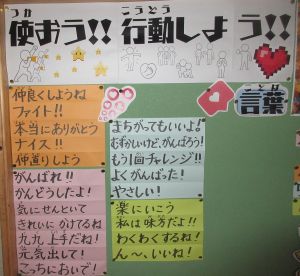 つか
使おう!! 行動しよう!!
こうどう
ことば
言葉
仲良くしようね
ファイト!!
本当にありがとう
ナイス!!
仲直りしよう
がんばれ!!
かんどうしたよ!
気にせんといて
きれいにかけてるね
九九上手だね!
元気出して!
こっちにおいで!
まちがってもいいよ。
むずかしいけど、がんばろう!
もう1回チャレンジ!!
よくがんばった!
やさしい!
楽にいこう
私は味方だよ!!
わくわくするね!
ん〜、いいね!